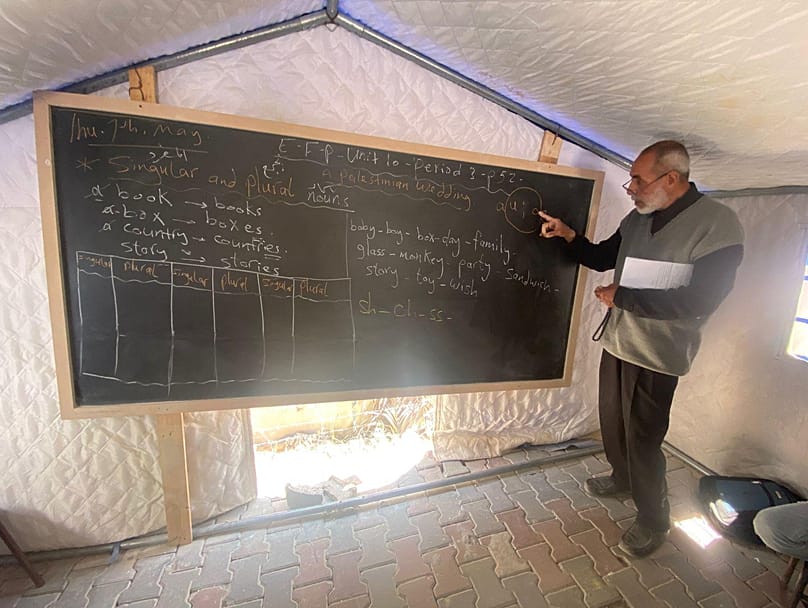 Thu. 7th, May
E-F-P-Unit 10-Period 3-P.52-
* Singular and plural nouns
A Palestinian Wedding
a book → books
a box → boxes.
a country → countries
story → stories
a u i
baby-boy-box-day-family-
glass-monkey-party-sandwish-
story-toy-wish
sh-ch-ss-
singular plural singular plural singular plural